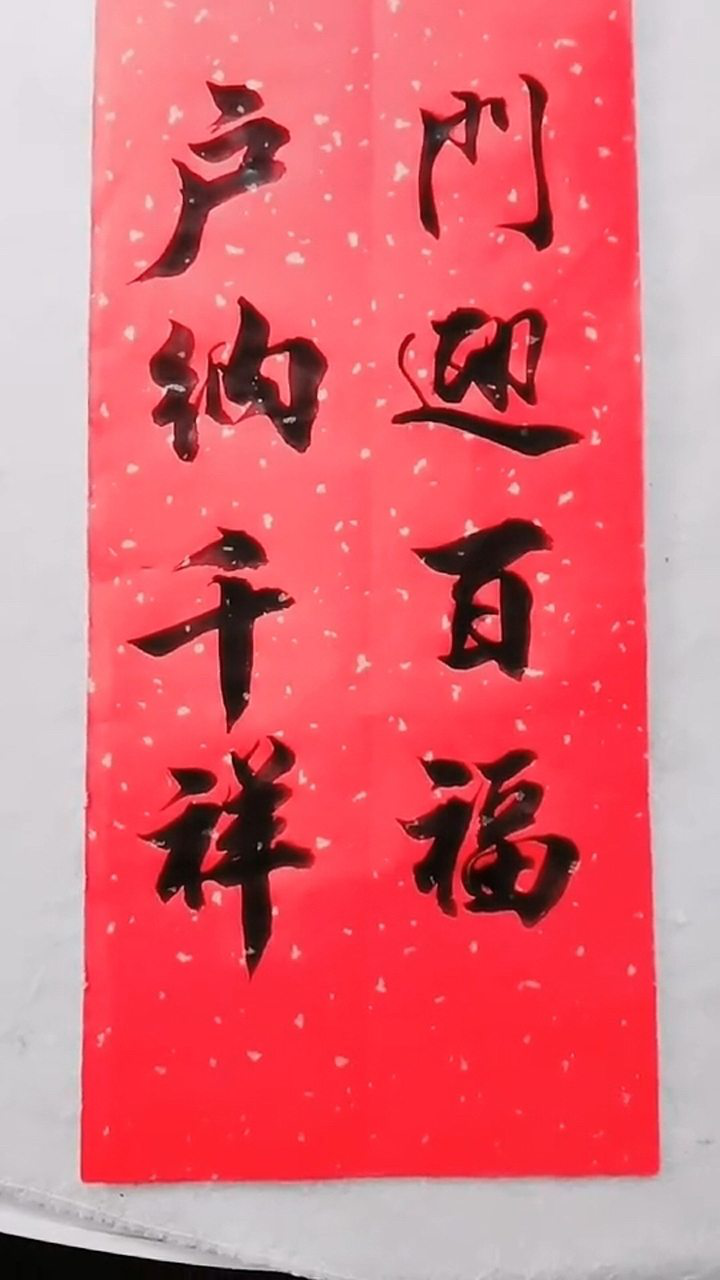 門迎百福
户納千祥